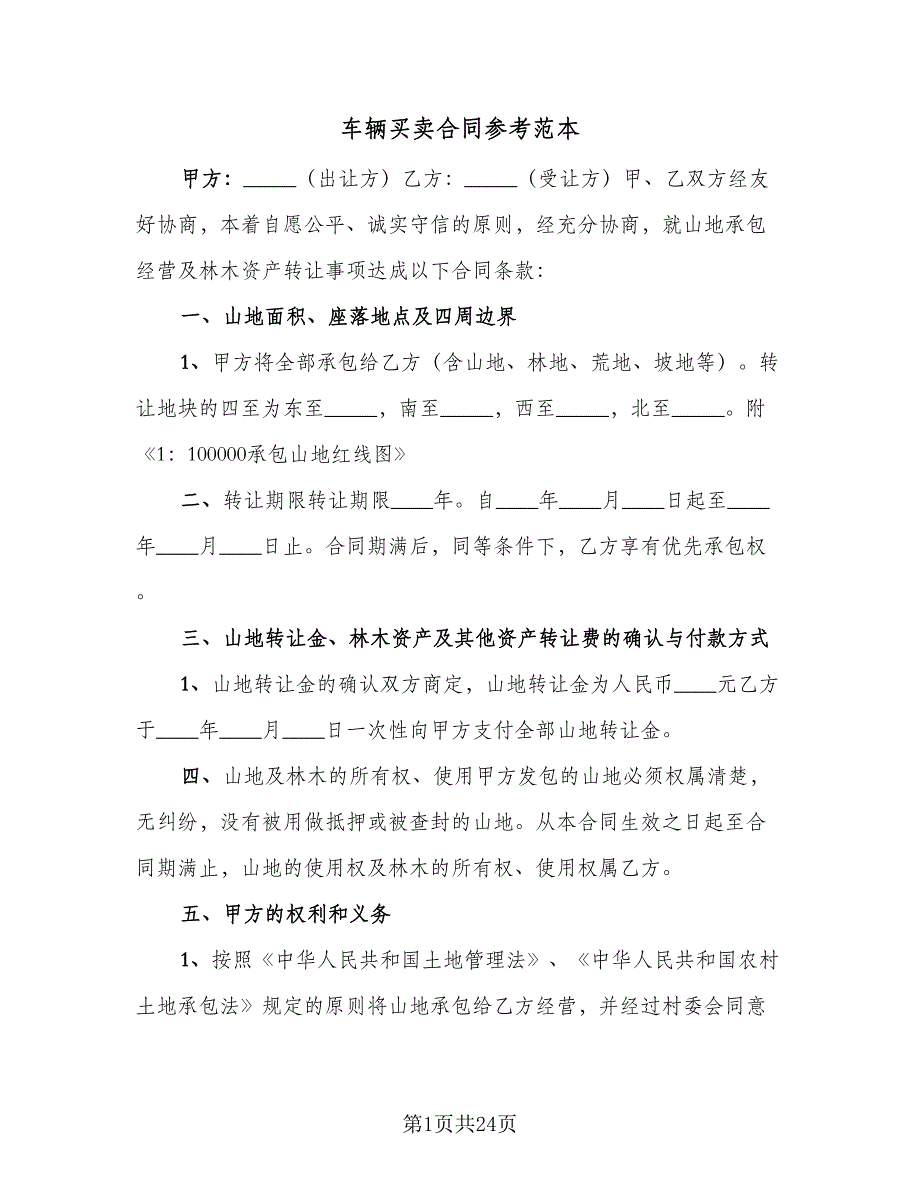 车辆买卖合同参考范本
甲方：_____（出让方）乙方：_____（受让方）甲、乙双方经友
好协商，本着自愿公平、诚实守信的原则，经充分协商，就山地承包
经营及林木资产转让事项达成以下合同条款：
一、山地面积、座落地点及四周边界
1、甲方将全部承包给乙方（含山地、林地、荒地、坡地等）。转
让地块的四至为东至_____，南至_____，西至_____，北至_____。附
《1：100000承包山地红线图》
二、转让期限转让期限____年。自____年____月____日起至____
年____月____日止。合同期满后，同等条件下，乙方享有优先承包权
。
三、山地转让金、林木资产及其他资产转让费的确认与付款方式
1、山地转让金的确认双方商定，山地转让金为人民币____元乙方
于____年____月____日一次性向甲方支付全部山地转让金。
四、山地及林木的所有权、使用甲方发包的山地必须权属清楚，
无纠纷，没有被用做抵押或被查封的山地。从本合同生效之日起至合
同期满止，山地的使用权及林木的所有权、使用权属乙方。
五、甲方的权利和义务
1、按照《中华人民共和国土地管理法》、《中华人民共和国农村
土地承包法》规定的原则将山地承包给乙方经营，并经过村委会同意
第1页共24页